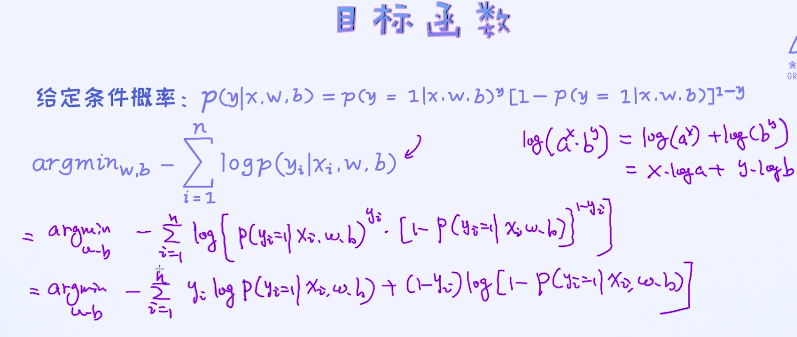 目标函数
给定条件概率: p(y|x,w,b) = p(y = 1|x.w.b)^y [1 - p(y = 1|x.w.b)]^{1-y}
argmin_{w,b} - \sum_{i=1}^{n} log p(y_i|x_i,w,b)
log(a^x·b^y) = log(a^x) + log(b^y)
= x·log a + y·log b
= argmin_{w·b} - \sum_{i=1}^{n} log[p(y_i=1|x_i,w.b)^{y_i} · [1 - p(y_i=1|x_i,w.b)]^{1-y_i}]
= argmin_{w·b} - \sum_{i=1}^{n} y_i log p(y_i=1|x_i,w.b) + (1-y_i) log[1 - p(y_i=1|x_i,w.b)]
GR